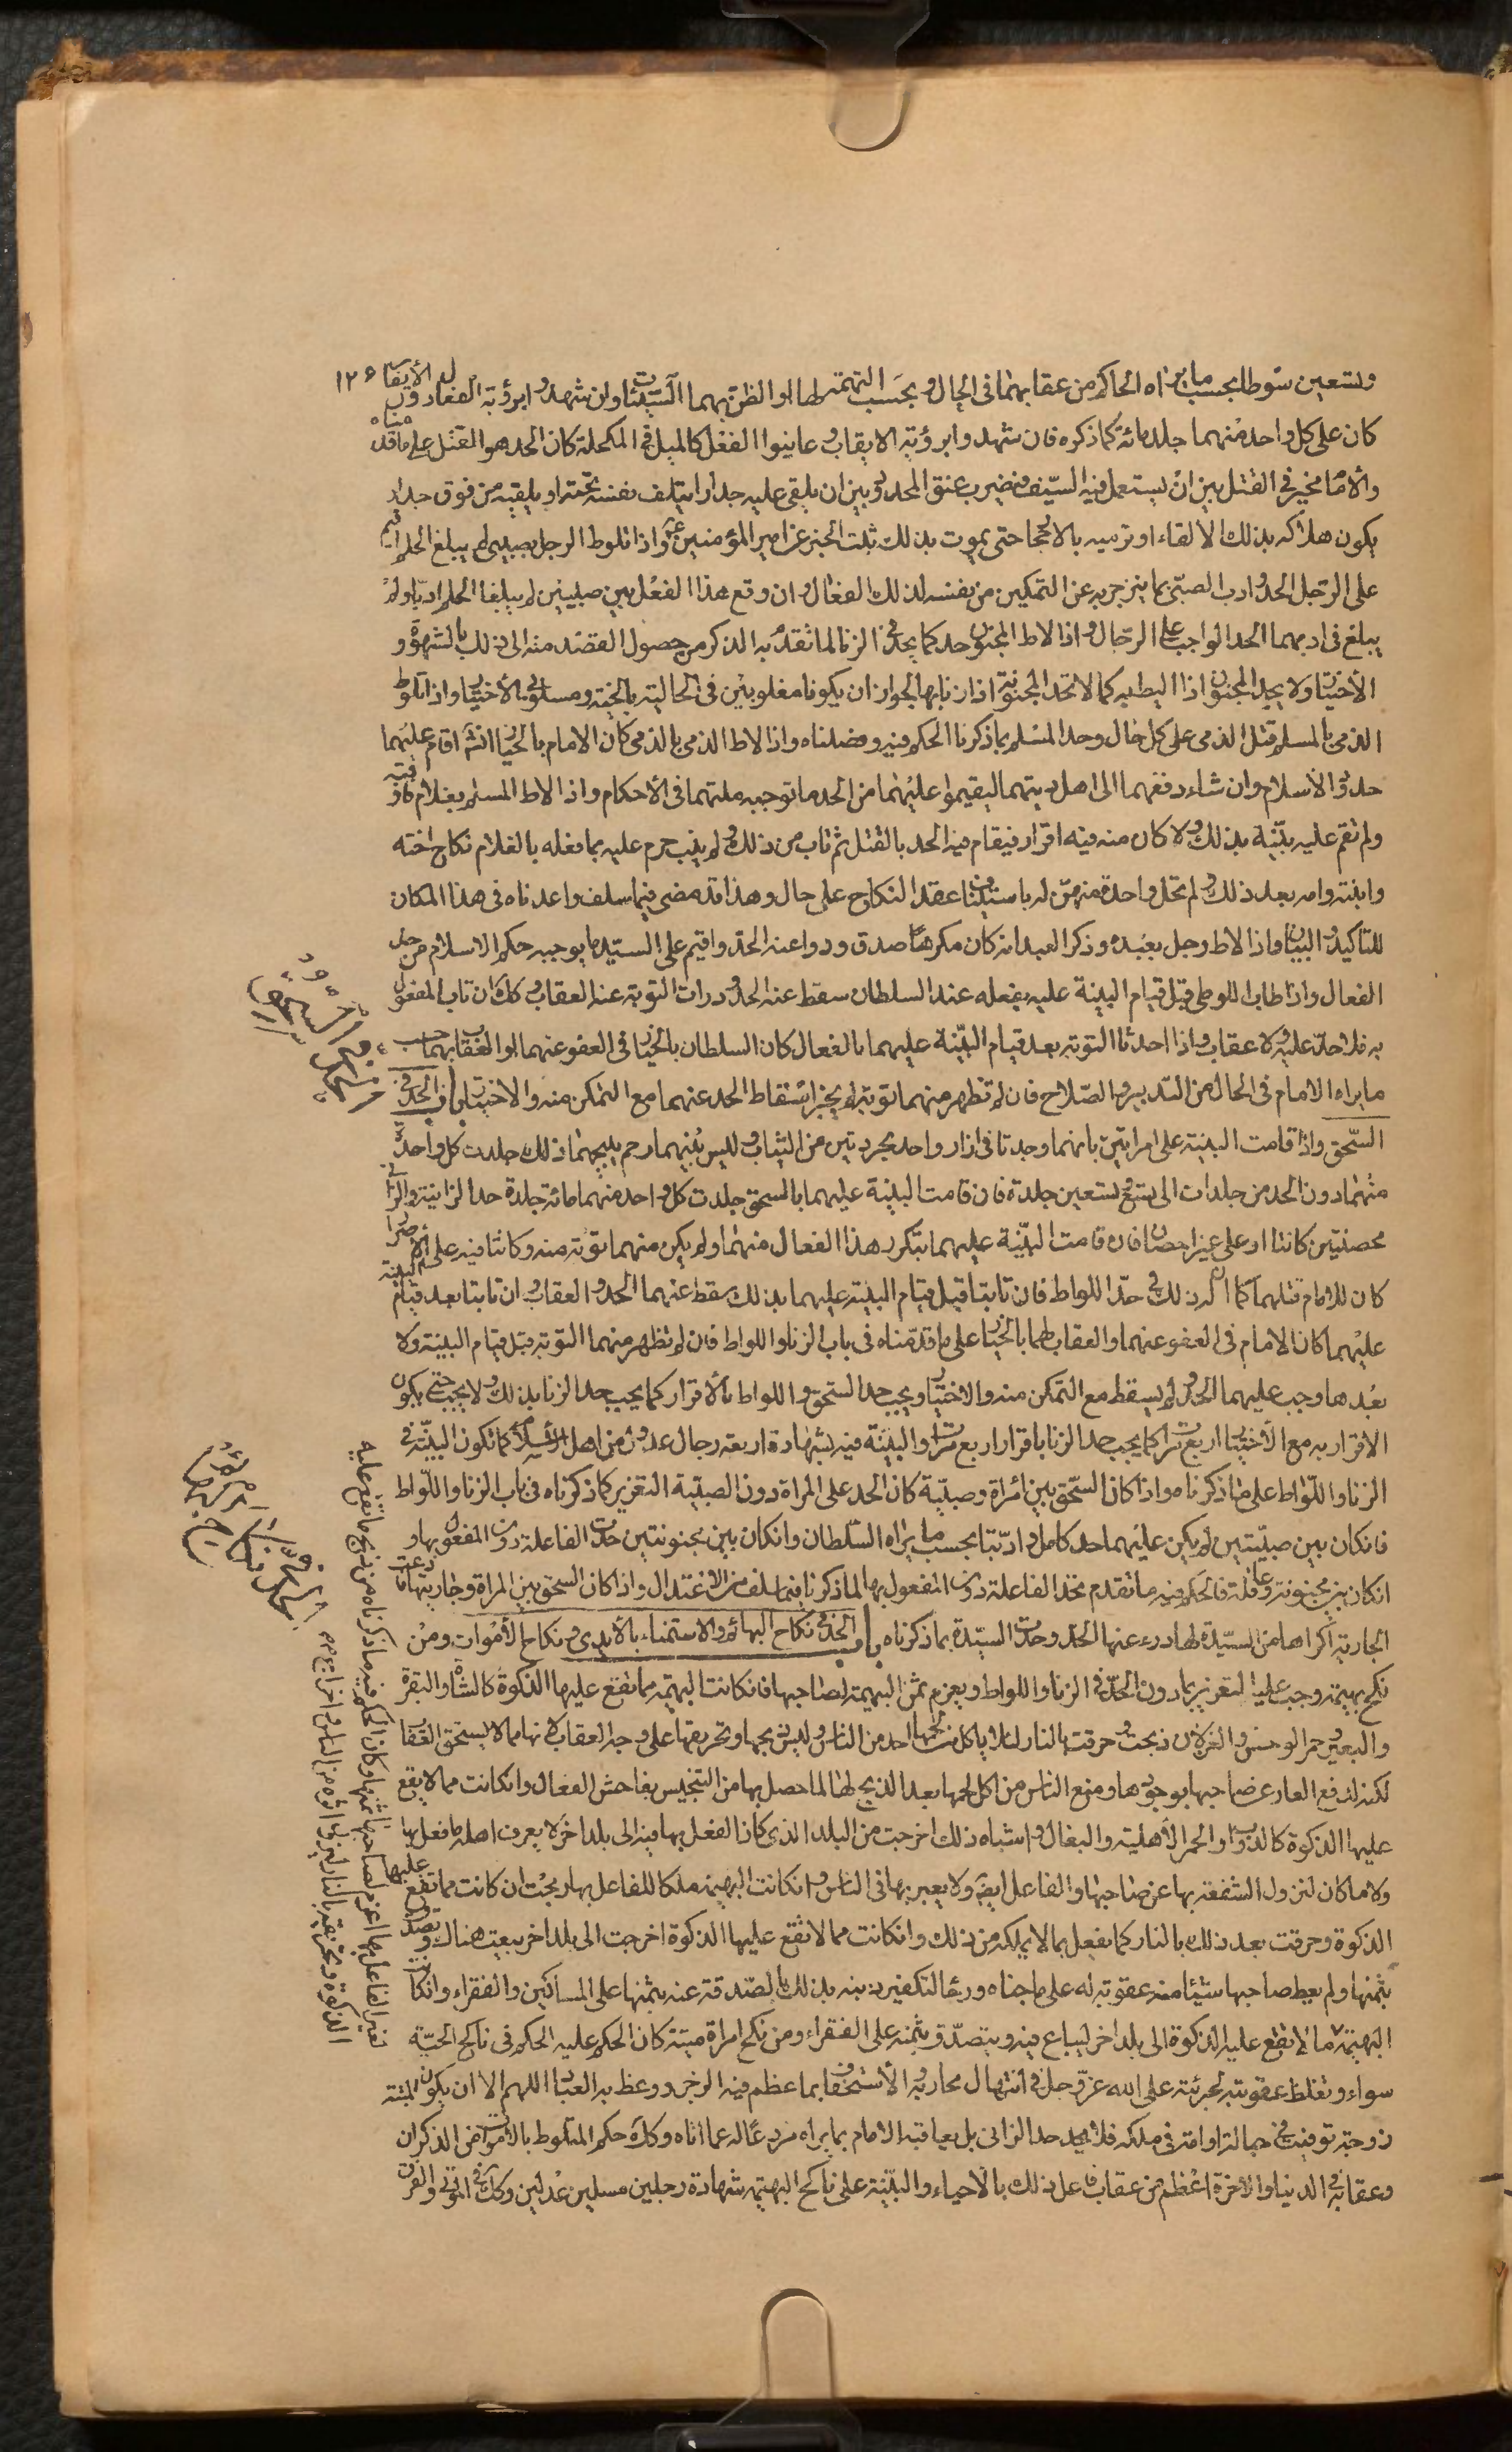 ١٢٦
وتسعين سوطا بحسب ما يراه الحاكم من عقابهما في الحال وبحسب التهمة لهما او الظن بهما السيئات وان شهدوا برؤية الفعال دون الايقاب
كان على كل واحد منهما جلد مائة كما ذكره فان شهدوا برؤية الايقاب وعاينوا الفعل كالميل في المكحلة كان الحد هو القتل على ما قدمناه
والامام مخير في القتل بين ان يستعمل فيه السيف فيضرب عنق المحدود وبين ان يلقي عليه جدارا يتلف نفسه تحته او يلقيه من فوق جدار
يكون هلاكه بذلك الالقاء او ترميه بالاحجار حتى يموت بذلك ثبت الخبر عن امير المؤمنين ع واذا تلوط الرجل بصبي لم يبلغ الحلم اقيم
على الرجل الحد وادب الصبي بما ينزجر به عن التمكين من نفسه لذلك الفعال وان وقع هذا الفعل بين صبيين لم يبلغا الحلم ادبا ولم
يبلغ في ادبهما الحد الواجب على الرجال واذا لاط المجنون حد كما يحد في الزنا لما تقدم به الذكر من حصول القصد منه الى ذلك بالشهوة و
الاختيار ولا يحد المجنون اذا ليط به كما لا تحد المجنونة اذا زنا بها لجواز ان يكونا مغلوبين في الحالية بالجنة ومسلوبي الاختيار واذا تلوط
الذمي بالمسلم قتل الذمي على كل حال وحد المسلم بما ذكرنا الحكم فيه وفصلناه واذا لاط الذمي بالذمي كان الامام بالخيار ان شاء اقام عليهما
حدود الاسلام وان شاء دفعهما الى اهل ديتهما ليقيموا عليهما من الحد ما توجبه ملتهما في الاحكام واذا لاط المسلم بغلام فاوقبه
ولم تقم عليه بينة بذلك ولا كان منه فيه اقرار فيقام فيه الحد بالقتل ثم تاب من ذلك او لم يتب حرم عليه بما فعله بالغلام نكاح اخته
وابنته وامه بعد ذلك ولم تحل واحدة منهن له باستيناف عقد النكاح على حال وهذا قد مضى فيما سلف واعدناه في هذا المكان
للتاكيد والبيان واذا لاط رجل بعبده وذكر العبد انه كان مكرها صدق ودرا عنه الحد واقيم على السيد ما يوجبه حكم الاسلام من حد
الفعال واذا طاب اللوطي قبل قيام البينة عليه بفعله عند السلطان سقط عنه الحد ودرات التوبة عنه العقاب وكك ان تاب المفعول
به فلا حد عليه ولا عقاب واذا احدثا التوبة بعد قيام البينة عليهما بالفعال كان السلطان بالخيار في العفو عنهما او العقاب بهما حسب
ما يراه الامام في الحال من التدبير والصلاح فان لم تظهر منهما توبة لم يجز اسقاط الحد عنهما مع التمكن منه والاختيار باب الحد في
السحق واذا قامت البينة على امراتين بانهما وجدتا في ازار واحد مجردتين من الثياب وليس بينهما رحم يبيحهما ذلك جلدت كل واحدة
منهما دون الحد من جلدات الى تسع وتسعين جلدة فان قامت البينة عليهما بالسحق جلدت كل واحد منهما مائة جلدة حد الزانية والزاني
محصنتين كانتا او على غير احصان فان قامت البينة عليهما بتكرر هذا الفعال منهما ولم يكن منهما توبة منه وكانتا فيه على الاصرار
كان للامام قتلهما كما ان له ذلك في حد اللواط فان تابتا قبل قيام البينة عليهما بذلك سقط عنهما الحد والعقاب وان تابتا بعد قيام البينة
عليهما كان الامام في العفو عنهما والعقاب لهما بالخيار على ما قدمناه في باب الزنا واللواط فان لم تظهر منهما التوبة قبل قيام البينة ولا
بعدها وجب عليهما الحد ولم يسقط مع التمكن منه والاختيار ويجب حد السحق واللواط بالاقرار كما يجب حد الزنا بذلك ولا يجب حتى يكون
الاقرار به مع الاختيار اربع مرات كما يجب حد الزنا باقرار اربع مرات والبينة فيه بشهادة اربعة رجال عدول من اهل الاسلام كما تكون البينة في
الزنا واللواط على ما ذكرناه واذا كان السحق بين امراة وصبية كان الحد على المراة دون الصبية التعزير كما ذكرناه في باب الزنا واللواط
فانكان بين صبيتين لم يكن عليهما حد كامل وادبتا بحسب ما يراه السلطان وانكان بين مجنونتين حدت الفاعلة دون المفعول بها و
انكان بين مجنونة وعاقلة فالحكم فيه ما تقدم تحد الفاعلة دون المفعول بها لما ذكرنا فيما سلف من الاعتدال واذا كان السحق بين المراة وجاريتها فادعت
الجارية اكراها من السيدة لها درء عنها الحد وحدت السيدة بما ذكرناه باب الحد في نكاح البهائم والاستمناء بالايدي ونكاح الاموات ومن
نكح بهيمة وجب عليه التعزير بما دون الحد في الزنا واللواط ويغرم ثمن البهيمة لصاحبها فانكانت البهيمة مما تقع عليها الذكوة كالشاة والبقرة
والبعير وحمر الوحش والغزلان ذبحت وحرقت بالنار لئلا ياكل لحمها احد من الناس وليس ذبحها وتحريقها على وجه العقاب لانها مما لا يستحق العقاب
لكن لدفع العار عن صاحبها بوجودها ومنع الناس من اكل لحمها بعد الذبح لها لما حصل بها من التنجيس بفاحش الفعال وانكانت مما لا يقع
عليها الذكوة كالدواب والحمر الاهلية والبغال واشباه ذلك اخرجت من البلد الذي كان الفعل بها فيه الى بلد اخر لا يعرف اهله ما فعل بها
ولا ما كان لتزول الشنعة بها عن صاحبها والفاعل ايضا ولا يعير بها في الناس وانكانت البهيمة ملكا للفاعل بها ذبحت ان كانت مما تقع عليها
الذكوة وحرقت بعد ذلك بالنار كما يفعل بما لا يملكه من ذلك وانكانت مما لا تقع عليها الذكوة اخرجت الى بلد اخر بيعت هناك وتصدق
بثمنها ولم يعط صاحبها شيئا منه عقوبة له على ما جناه ورجا لتكفير ذنبه بذلك بالصدقة عنه بثمنها على المساكين والفقراء وانكانت
البهيمة مما لا تقع عليه الذكوة الى بلد اخر ليباع فيه ويتصدق بثمنه على الفقراء ومن نكح امراة ميتة كان الحكم عليه الحكم في ناكح الحية
سواء وتغلظ عقوبته لجرئته على الله عز وجل في انتهاك محارمه والاستخفاف بما عظم فيه الزجر ووعظ به العباد اللهم الا ان يكون الميتة
زوجته توفيت في حباله او امته في ملكه فلا يحد حد الزاني بل يعاقبه الامام بما يراه مردعا له عما اتاه وكك حكم المتلوط بالاموات من الذكران
وعقابه في الدنيا والاخرة اعظم من عقاب فاعل ذلك بالاحياء والبينة على ناكح البهيمة شهادة رجلين مسلمين عدلين وكك في اتوني والقرن
الحد في السحق
الحد في نكاح البهائم
لغير الفاعل بها اغرم لصاحبها ثمنها وكان الحكم فيه ما ذكرناه من ذبح ما تقع عليه
الذكوة وتحريقه بالنار ليزول اثره من الناس واخراج ما